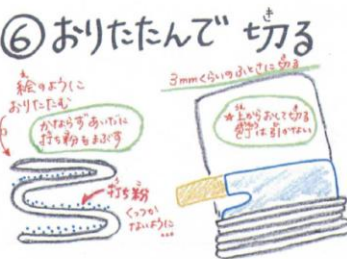 ⑥おりたたんで 切る
き
絵のように
え
おりたたむ
かならずあいだに
打ち粉をまぶす
打ち粉
う こ
くっつか
ないように…
3mmくらいのふとさに切る
き
★上からおして切る
うえ き
包丁は引かない